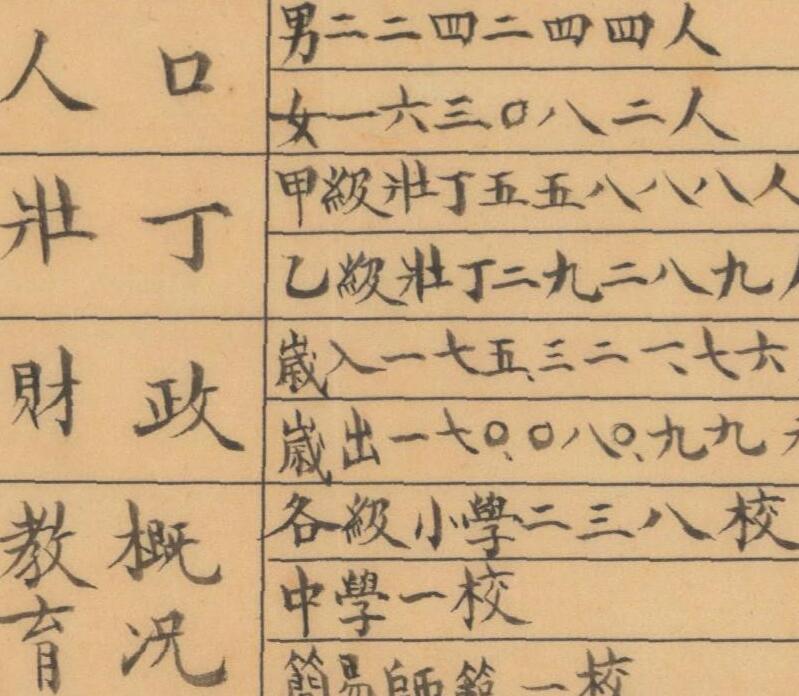 人口
男二二四二四四人
女一六三〇八二人
壯丁
甲級壯丁五五八八八人
乙級壯丁二九二八九人
財政
歲入一七五、三二一、七六
歲出一七〇、〇八〇、九九
教育概况
各級小學二三八校
中學一校
簡易師範一校